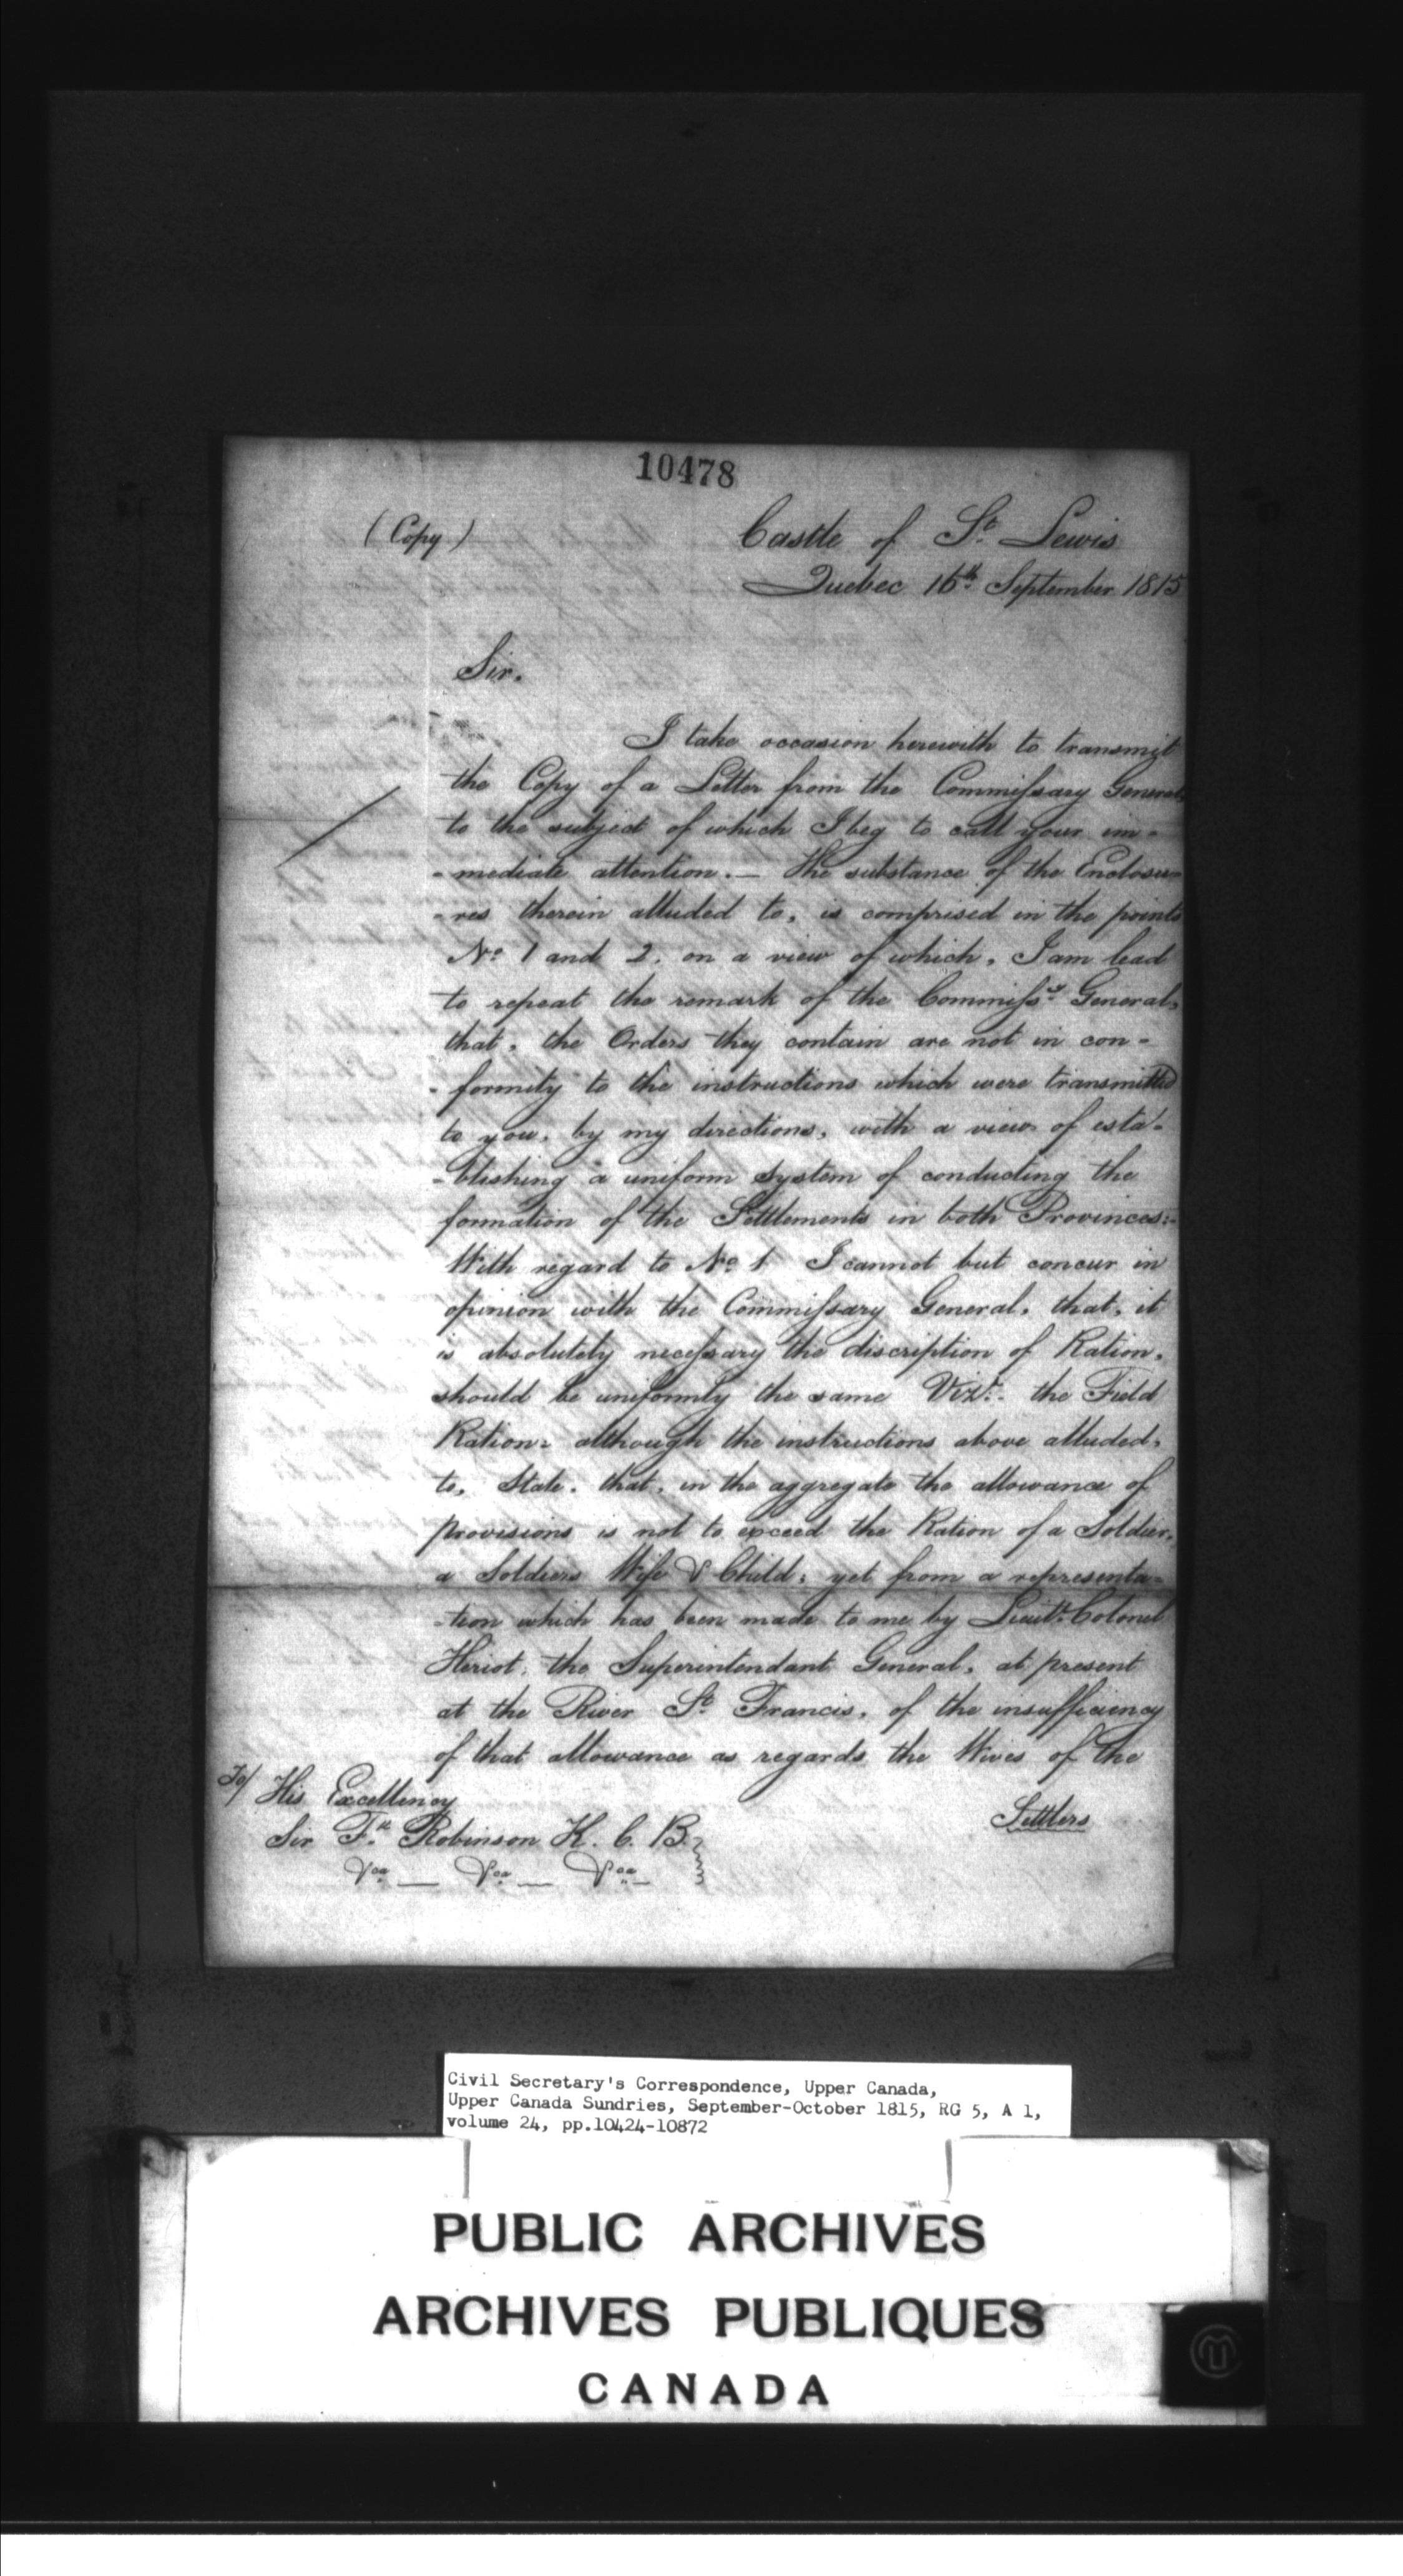 10478
(Copy)
Castle of St. Lewis
Quebec 16th September 1815
Sir.
I take occasion herewith to transmit
the Copy of a Letter from the Commissary General,
to the subject of which I beg to call your im-
-mediate attention.— The substance of the Enclosu-
-res therein alluded to, is comprised in the points
No. 1 and 2. on a view of which, I am lead
to repeat the remark of the Commissy. General,
that, the Orders they contain are not in con-
-formity to the instructions which were transmitted
to you, by my directions, with a view of esta-
-blishing a uniform system of conducting the
formation of the Settlements in both Provinces:-
With regard to No. 1 I cannot but concur in
opinion with the Commissary General, that, it
is absolutely necessary the discription of Ration,
should be uniformly the same Vizt.- the Field
Ration: although the instructions above alluded,
to, State, that, in the aggregate the allowance of
provisions is not to exceed the Ration of a Soldier,
a Soldiers Wife & Child; yet from a representa-
-tion which has been made to me by Lieutt. Colonel
Heriot, the Superintendant General, at present
at the River St. Francis, of the insufficiency
of that allowance as regards the Wives of the
Settlers
To/ His Excellency
Sir Fk. Robinson K.C.B.
&ca — &ca — &ca —
Civil Secretary's Correspondence, Upper Canada,
Upper Canada Sundries, September-October 1815, RG 5, A 1,
volume 24, pp.10424-10872
PUBLIC ARCHIVES
ARCHIVES PUBLIQUES
CANADA